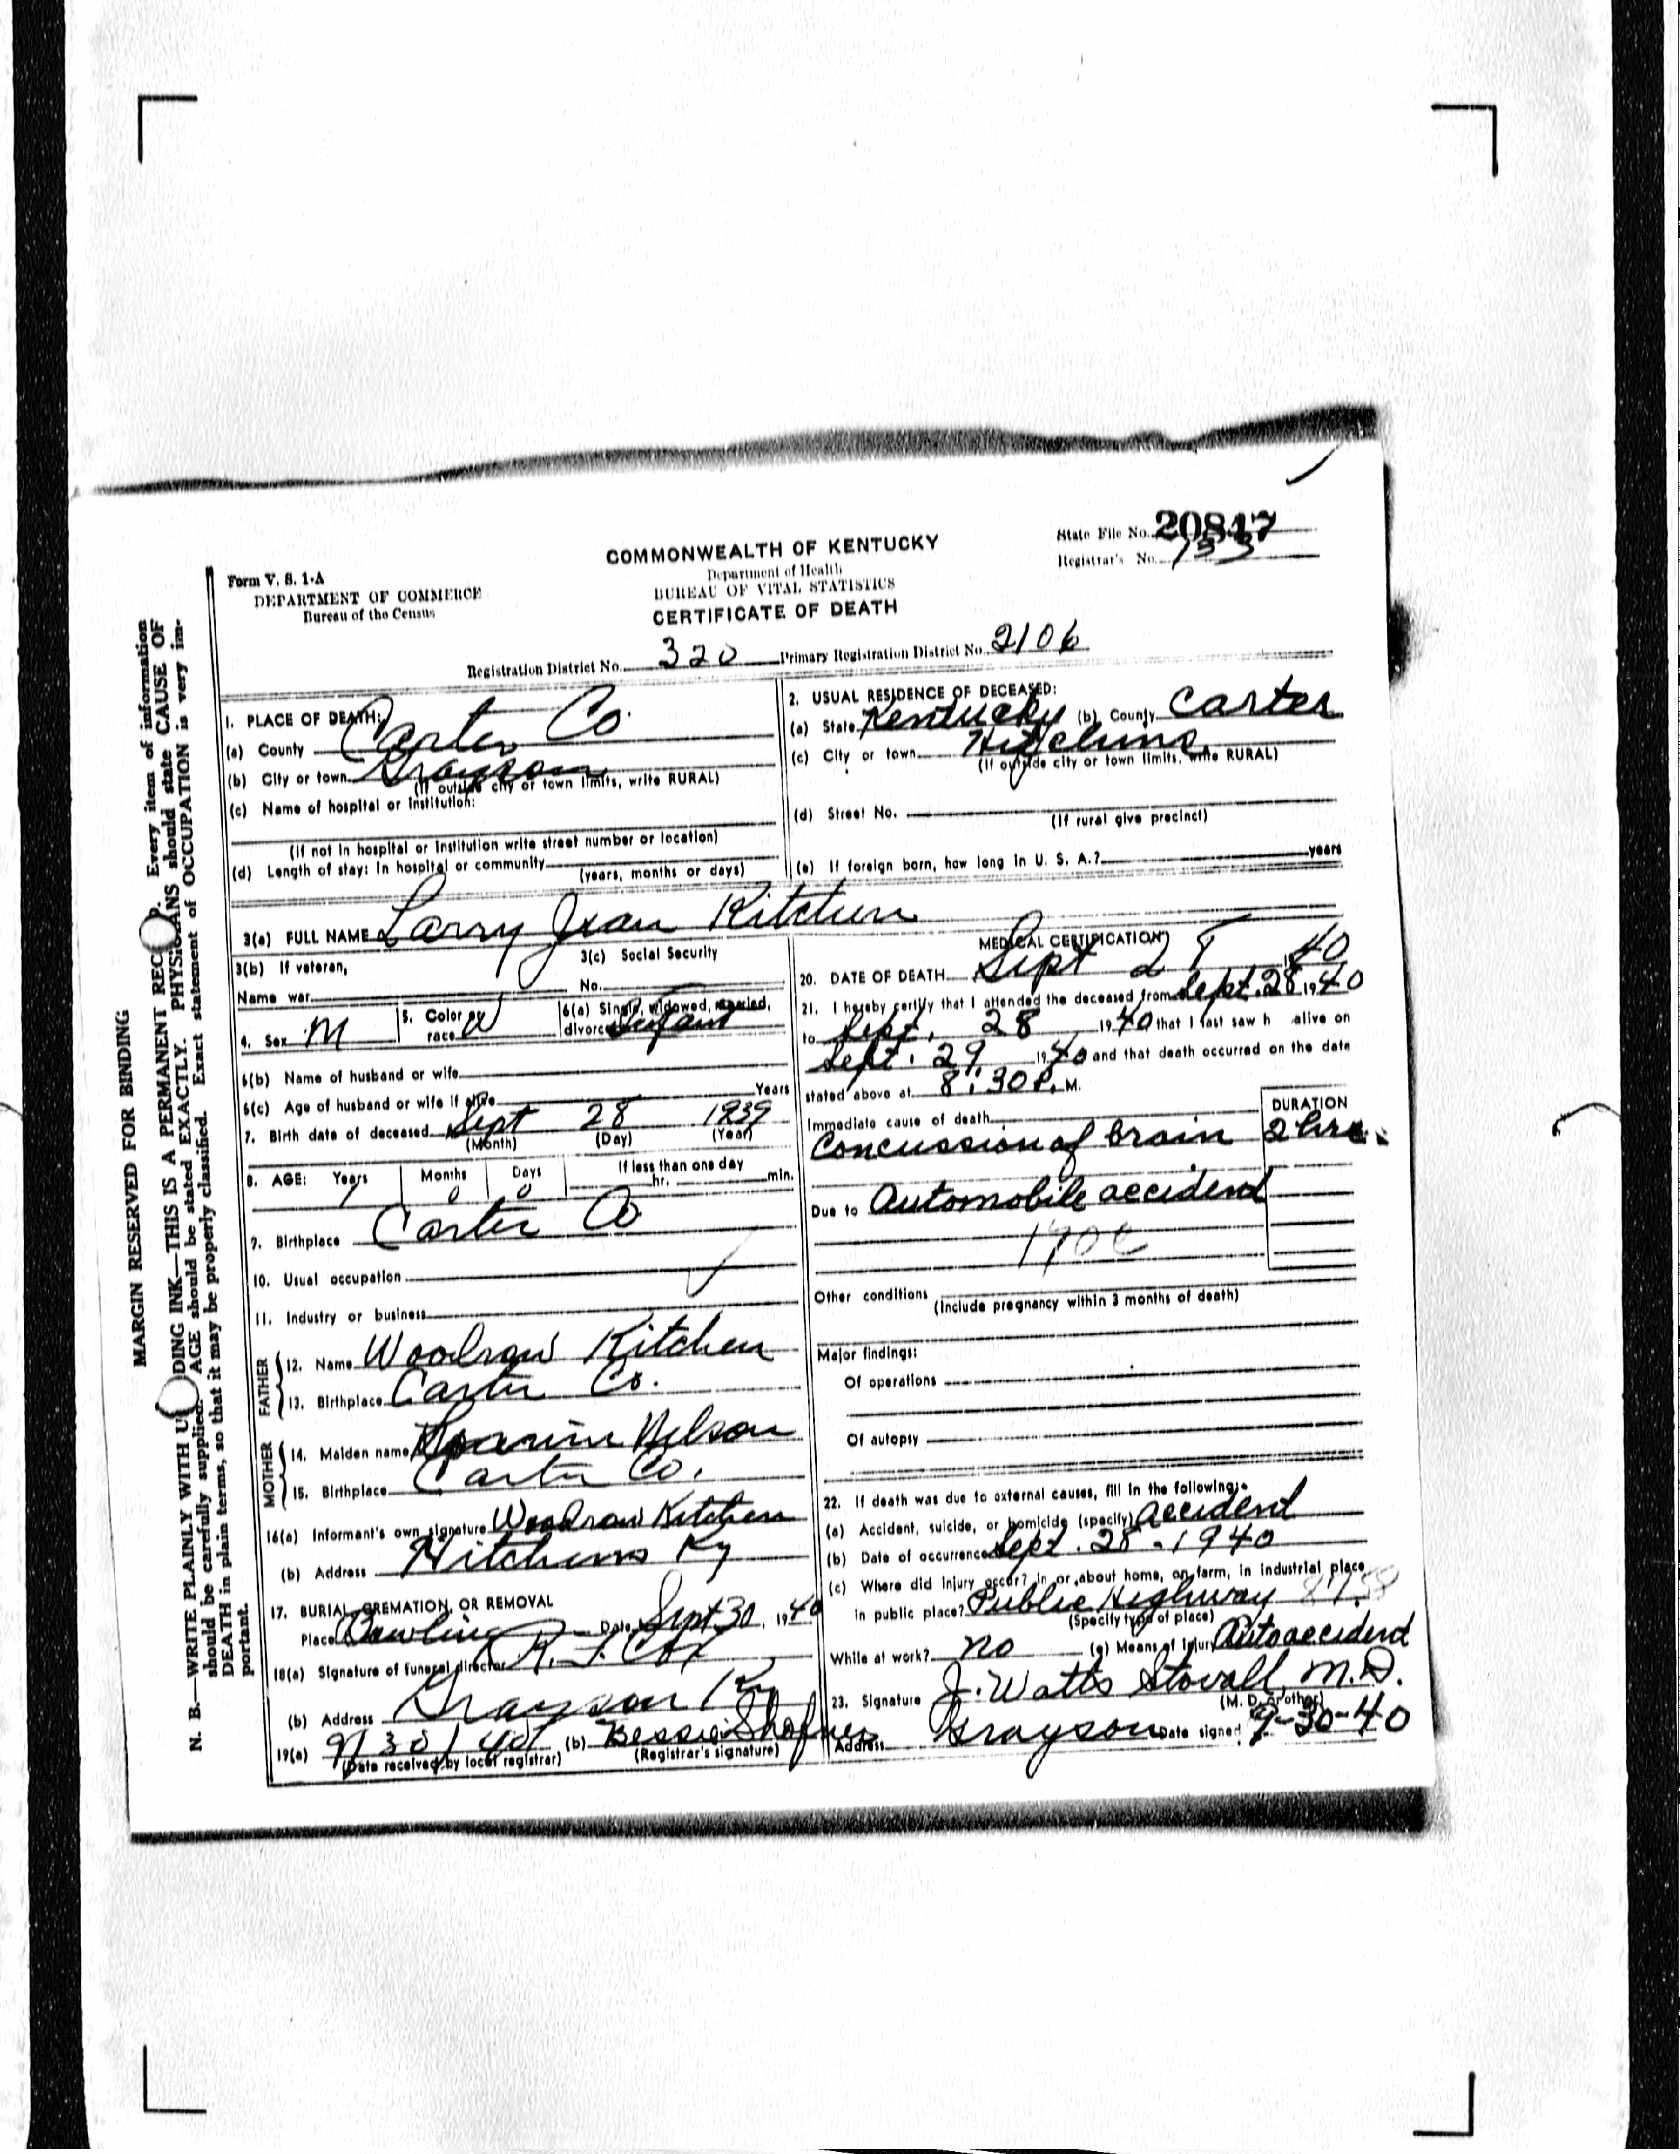 State File No. 20847
Registrar's No. 133
COMMONWEALTH OF KENTUCKY
Department of Health
BUREAU OF VITAL STATISTICS
CERTIFICATE OF DEATH
Form V. S. 1-A
DEPARTMENT OF COMMERCE
Bureau of the Census
Registration District No. 320 Primary Registration District No. 2106
MARGIN RESERVED FOR BINDING
N. B.—WRITE PLAINLY WITH U DING INK—THIS IS A PERMANENT REC D. Every item of information
should be carefully supplied. AGE should be stated EXACTLY. PHYSICIANS should state CAUSE OF
DEATH in plain terms, so that it may be properly classified. Exact statement of OCCUPATION is very im-
portant.
1. PLACE OF DEATH:
(a) County Carter Co
(b) City or town Grayson
(If outside city or town limits, write RURAL)
(c) Name of hospital or Institution:
(If not in hospital or institution write street number or location)
(d) Length of stay: In hospital or community
(years, months or days)
2. USUAL RESIDENCE OF DECEASED:
(a) State Kentucky (b) County Carter
(c) City or town Hitchins
(If outside city or town limits, write RURAL)
(d) Street No.
(If rural give precinct)
(e) If foreign born, how long in U. S. A.? years
3(a) FULL NAME Larry Jean Kitchen
3(b) If veteran,
Name war
3(c) Social Security
No.
4. Sex M
5. Color or race W
6(a) Single, widowed, married, divorced Infant
6(b) Name of husband or wife
6(c) Age of husband or wife if alive Years
7. Birth date of deceased Sept 28 1939
(Month) (Day) (Year)
8. AGE: Years Months Days If less than one day
1 0 0 hr. min.
9. Birthplace Carter Co
10. Usual occupation
11. Industry or business
FATHER
12. Name Woodrow Kitchen
13. Birthplace Carter Co.
MOTHER
14. Maiden name Nelson
15. Birthplace Carter Co.
16(a) Informant's own signature Woodrow Kitchen
(b) Address Hitchins Ky
17. BURIAL, CREMATION, OR REMOVAL
Place Bowling Date Sept 30, 1940
18(a) Signature of funeral director R. J. Cox
(b) Address Grayson Ky
19(a) 9/30/40 (b) Bessie Shofner
(Date received by local registrar) (Registrar's signature)
MEDICAL CERTIFICATION
20. DATE OF DEATH Sept 28 1940
21. I hereby certify that I attended the deceased from Sept. 28 1940
to Sept. 28 1940 that I last saw h alive on
Sept. 29 1940 and that death occurred on the date
stated above at 8:30 P. M.
Immediate cause of death DURATION
Concussion of brain 2 hrs.
Due to Automobile accident
Other conditions
(Include pregnancy within 3 months of death)
Major findings:
Of operations
Of autopsy
22. If death was due to external causes, fill in the following:
(a) Accident, suicide, or homicide (specify) accident
(b) Date of occurrence Sept. 28 - 1940
(c) Where did injury occur? in or about home, on farm, in industrial place,
in public place? Public Highway
(Specify type of place)
While at work? no (e) Means of Injury Auto accident
23. Signature J. Watts Stovall, M.D.
(M. D. or other)
Address Grayson Date signed 9-30-40